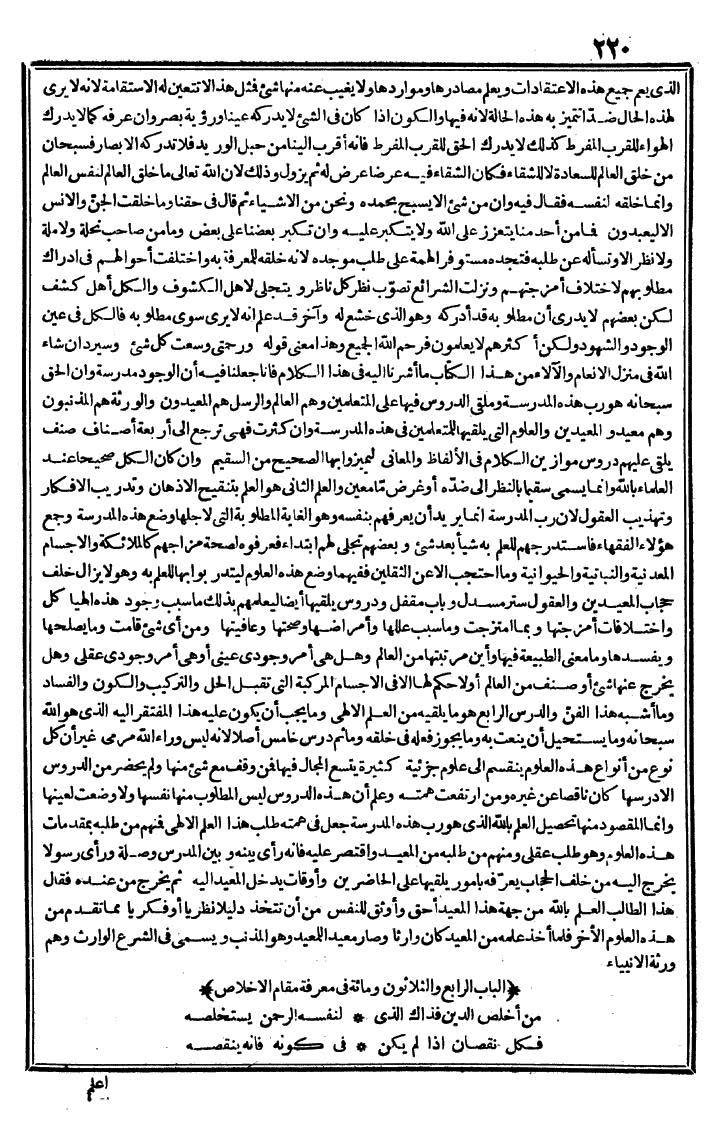 ٢٢٠
الذى يعم جميع هذه الاعتقادات ويعلم مصادرها ومواردها ولا يغيب عنه منها شئ فمثل هذا لا تتعين له الاستقامة لانه لا يرى
لهذه الحال ضدّا تتميز به هذه الحالة لانه فيها والكون اذا كان فى الشئ لا يدركه عينا ورؤية بصر وان عرفه كما لا يدرك
الهواء للقرب المفرط كذلك لا يدرك الحق للقرب المفرط فانه أقرب الينا من حبل الوريد فلا تدركه الابصار فسبحان
من خلق العالم للسعادة لا للشقاء فكان الشقاء فيه عرضا عرض له ثم يزول وذلك لان الله تعالى ما خلق العالم لنفس العالم
وانما خلقه لنفسه فقال فيه وان من شئ الا يسبح بحمده ونحن من الاشياء ثم قال فى حقنا وما خلقت الجنّ والانس
الا ليعبدون فما من أحد منا يتعزز على الله ولا يتكبر عليه وان تكبر بعضنا على بعض وما من صاحب نحلة ولا ملة
ولا نظر الا وتسأله عن طلبه فتجده مستوفر الهمة على طلب موجده لانه خلقه للمعرفة به واختلفت أحوالهم فى ادراك
مطلوبهم لاختلاف أمزجتهم ونزلت الشرائع تصوّب نظر كل ناظر ويتجلى لاهل الكشوف والكل أهل كشف
لكن بعضهم لا يدرى أن مطلوبه قد أدركه وهو الذى خشع له وآخر قد علم انه لا يرى سوى مطلوبه فالكل فى عين
الوجود والشهود ولكن أكثرهم لا يعلمون فرحم الله الجميع وهذا معنى قوله ورحمتى وسعت كل شئ وسيرد ان شاء
الله فى منزل الانعام والآلاء من هذا الكتاب ما أشرنا اليه فى هذا الكلام فانا جعلنا فيه أن الوجود مدرسة وان الحق
سبحانه هو رب هذه المدرسة وملقى الدروس فيها على المتعلمين وهم العالم والرسل هم المعيدون والورثة هم المذنبون
وهم معيدو المعيدين والعلوم التى يلقيها للمتعلمين فى هذه المدرسة وان كثرت فهى ترجع الى أربعة أصناف صنف
يلقى عليهم دروس موازين الكلام فى الالفاظ والمعانى ليميزوا بها الصحيح من السقيم وان كان الكل صحيحا عند
العلماء بالله وانما يسمى سقيما بالنظر الى ضدّه أو غرض مّا معين والعلم الثانى هو العلم بتنقيح الاذهان وتدريب الافكار
وتهذيب العقول لان رب المدرسة انما يريد أن يعرفهم بنفسه وهو الغاية المطلوبة التى لاجلها وضع هذه المدرسة وجمع
هؤلاء الفقهاء فاستدرجهم للعلم به شيأ بعد شئ وبعضهم تجلى لهم ابتداء فعرفوه لصحة مزاجهم كالملائكة والاجسام
المعدنية والنباتية والحيوانية وما احتجب الا عن الثقلين ففيهما وضع هذه العلوم ليتدربوا بها للعلم به وهو لا يزال خلف
حجاب المعيدين والعقول ستر مسدل وباب مقفل ودروس يلقيها أيضا ليعلمهم بذلك ما سبب وجود هذه الهياكل
واختلافات أمزجتها وبما امتزجت وما سبب عللها وأمراضها وصحتها وعافيتها ومن أى شئ قامت وما يصلحها
ويفسدها وما معنى الطبيعة فيها وأين مرتبتها من العالم وهل هى أمر وجودى عينى أو هى أمر وجودى عقلى وهل
يخرج عنها شئ أو صنف من العالم أو لا حكم لها الا فى الاجسام المركبة التى تقبل الحل والتركيب والكون والفساد
وما أشبه هذا الفنّ والدرس الرابع هو ما يلقيه من العلم الالهى وما يجب أن يكون عليه هذا المفتقر اليه الذى هو الله
سبحانه وما يستحيل أن ينعت به وما يجوز فعله فى خلقه وما ثم درس خامس أصلا لانه ليس وراء الله مرمى غير أن كل
نوع من أنواع هذه العلوم ينقسم الى علوم جزئية كثيرة يتسع المجال فيها فمن وقف مع شئ منها ولم يحضر من الدروس
الا درسها كان ناقصا عن غيره ومن ارتفعت همته وعلم أن هذه الدروس ليس المطلوب منها نفسها ولا وضعت لعينها
وانما المقصود منها تحصيل العلم بالله الذى هو رب هذه المدرسة جعل فى همته طلب هذا العلم الالهى فمنهم من طلبه بمقدمات
هذه العلوم وهو طلب عقلى ومنهم من طلبه من المعيد واقتصر عليه فانه رأى بينه وبين المدرس وصلة ورأى رسولا
يخرج اليه من خلف الحجاب يعرّفه بأمور يلقيها على الحاضرين وأوقات يدخل المعيد اليه ثم يخرج من عنده فقال
هذا الطالب العلم بالله من جهة هذا المعيد أحق وأوثق للنفس من أن تتخذ دليلا نظريا أو فكريا مما تقدم من
هذه العلوم الأخر فلما أخذ علمه من المعيد كان وارثا وصار معيد المعيد وهو المذنب ويسمى فى الشرع الوارث وهم
ورثة الانبياء
﴿الباب الرابع والثلاثون ومائة فى معرفة مقام الاخلاص﴾
من أخلص الدين فذاك الذى * لنفسه الرحمن يستخلصه
فكل نقصان اذا لم يكن * فى كونه فانه ينقصه
اعلم